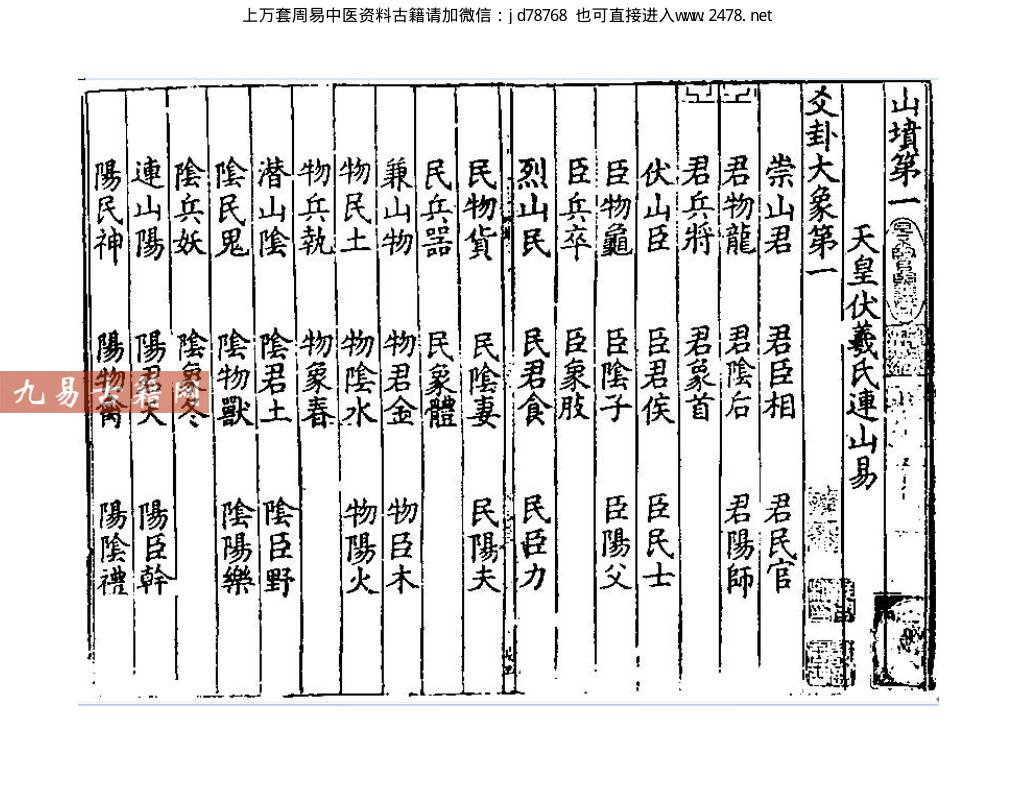 上万套周易中医资料古籍请加微信：jd78768 也可直接进入www.2478.net
山墳第一
天皇伏羲氏連山易
爻卦大象第一
崇山君 君臣相 君民官
君物龍 君陰后 君陽師
君兵將 君象首
伏山臣 臣君侯 臣民士
臣物龜 臣陰子 臣陽父
臣兵卒 臣象肢
烈山民 民君食 民臣力
民物貨 民陰妻 民陽夫
民兵器 民象體
兼山物 物君金 物臣木
物民土 物陰水 物陽火
物兵執 物象春
潛山陰 陰君土 陰臣野
陰民鬼 陰物獸 陰陽樂
陰兵妖 陰象冬
連山陽 陽君天 陽臣幹
陽民神 陽物禽 陽陰禮
九易古籍网